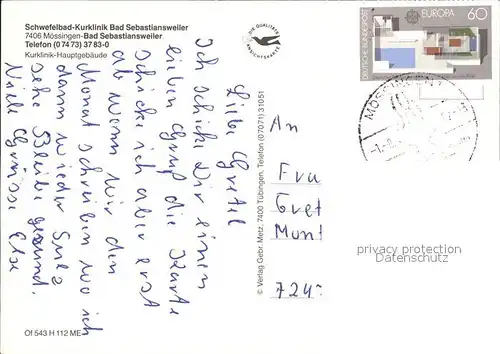 Schwefelbad-Kurklinik Bad Sebastiansweiler
7406 Mössingen-Bad Sebastiansweiler
Telefon (0 74 73) 37 83-0
Kurklinik-Hauptgebäude
DIE QUALITÄTS
ANSICHTSKARTE
DEUTSCHE BUNDESPOST
EUROPA
60
MÖSSINGEN
Liebe Gretel
Ich schicke Dir einen
lieben Gruß die Karte
schicke ich aber erst
ab wenn wir den
Monat schreiben wo ich
dann wieder Sulz
sehe Bleibe gesund.
Viele Grüsse Else
© Verlag Gebr. Metz, 7400 Tübingen, Telefon (07071) 31051
An
Frau
Gret
Mont
724
privacy protection
Datenschutz
Of 543 H 112 ME